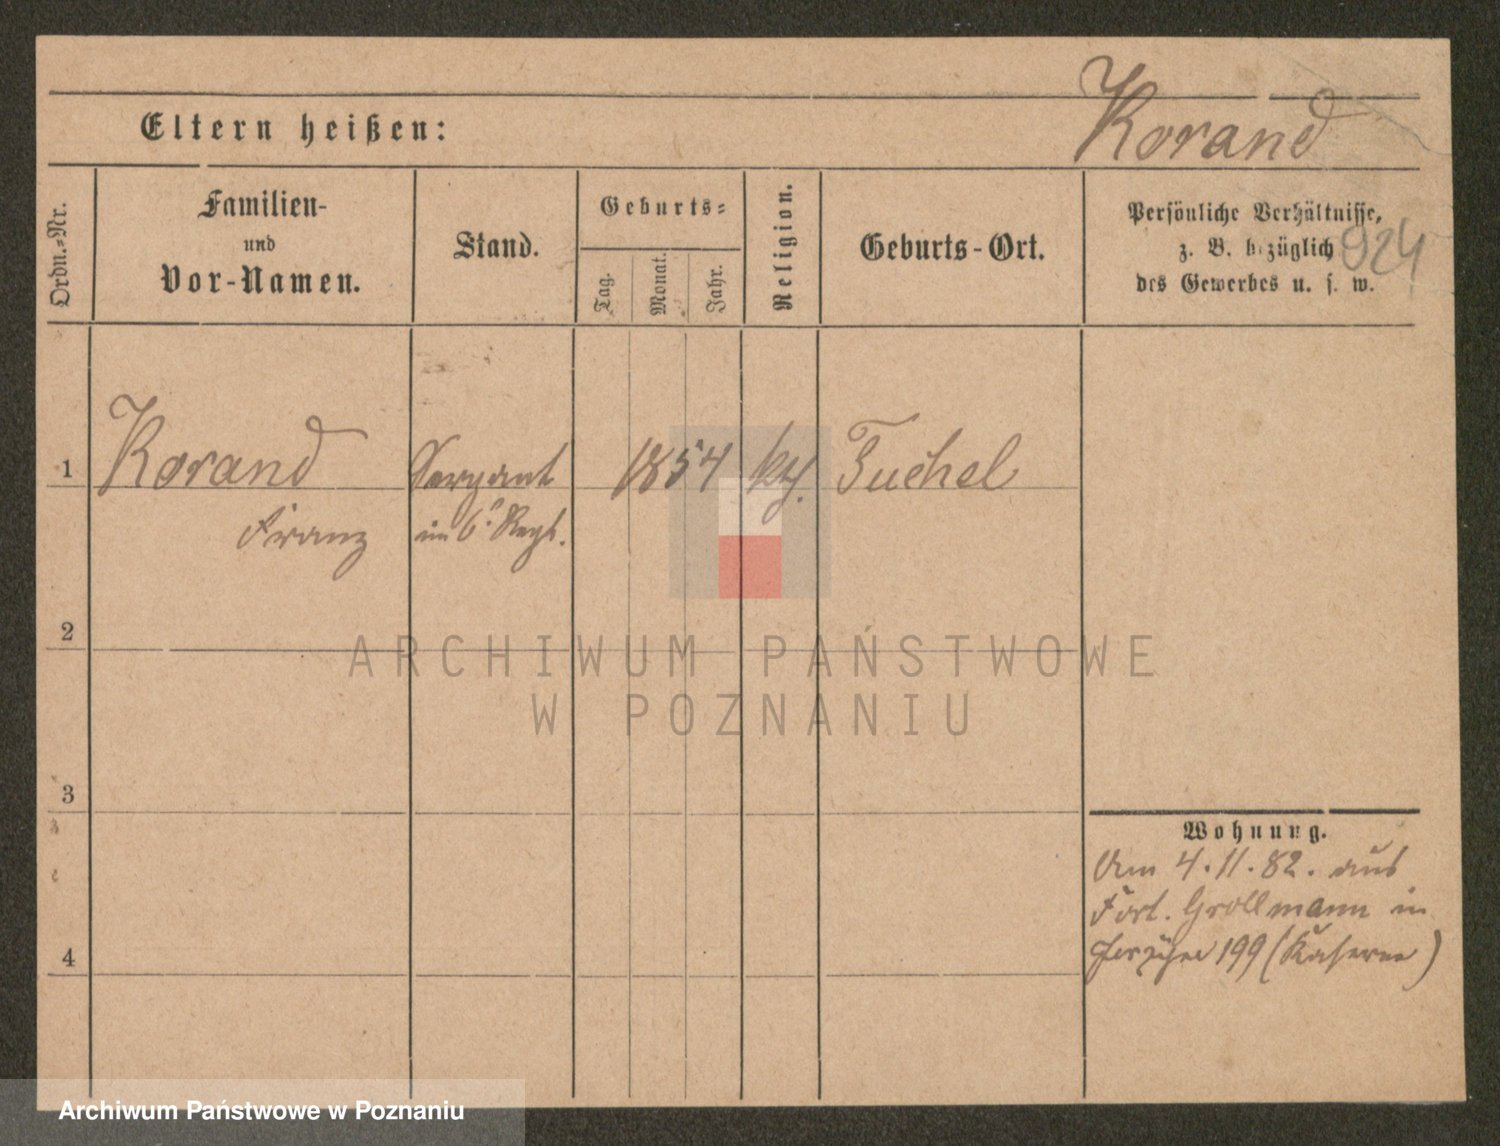 Korand
Eltern heißen:
Ordn.=Nr.
Familien-
und
Vor-Namen.
Stand.
Geburts=
Tag.
Monat.
Jahr.
Religion.
Geburts-Ort.
Persönliche Verhältnisse,
z. B. bezüglich
des Gewerbes u. s. w.
924
1
Korand
Franz
Sergant
im 6. Regt.
1854
kth.
Tuchel
2
3
4
Wohnung.
Am 4.11.82. aus
Fort. Grollmann in
199 (Kaserne)
ARCHIWUM PAŃSTWOWE
W POZNANIU
Archiwum Państwowe w Poznaniu